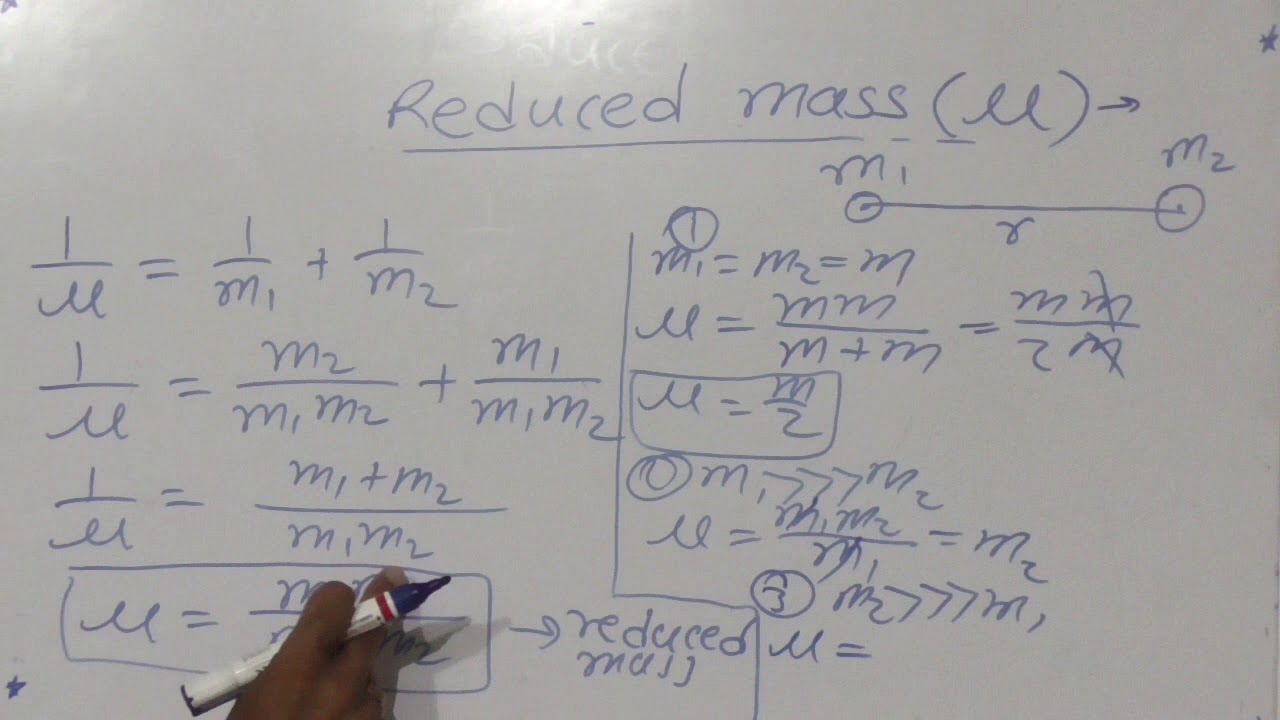 Reduced mass (μ) →
m₁ m₂
r
1/μ = 1/m₁ + 1/m₂
1/μ = m₂/m₁m₂ + m₁/m₁m₂
1/μ = m₁+m₂/m₁m₂
μ =
m₂
→ reduced
mass
①
m₁ = m₂ = m
μ = mm/m+m = mm/2m
μ = m/2
m₁ >>> m₂
μ = m₁m₂/m₁ = m₂
③ m₂ >>> m₁
μ =